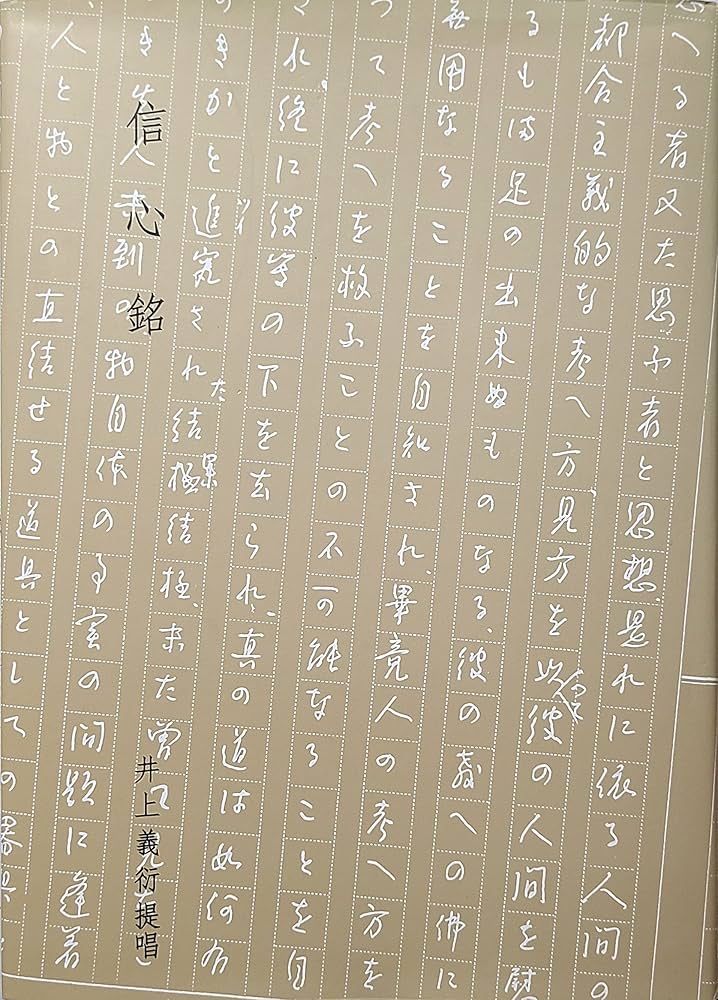 へる者又た思ふ者と思想、是れに依る人間の
都合主義的な考へ方、見方を彼の人間を
るも満足の出来ぬものなる、彼の教への佛に
無用なることを自知され、畢竟人の考へ方を
つて考へを救ふことの不可能なることを自
され、終に彼等の下を去られ、真の道は如何
きかを追究された結果結極、未た曽て
人未到の物自体の事実の問題に逢着
人と物との直結せる道具としての器具
信心銘
井上義衍提唱